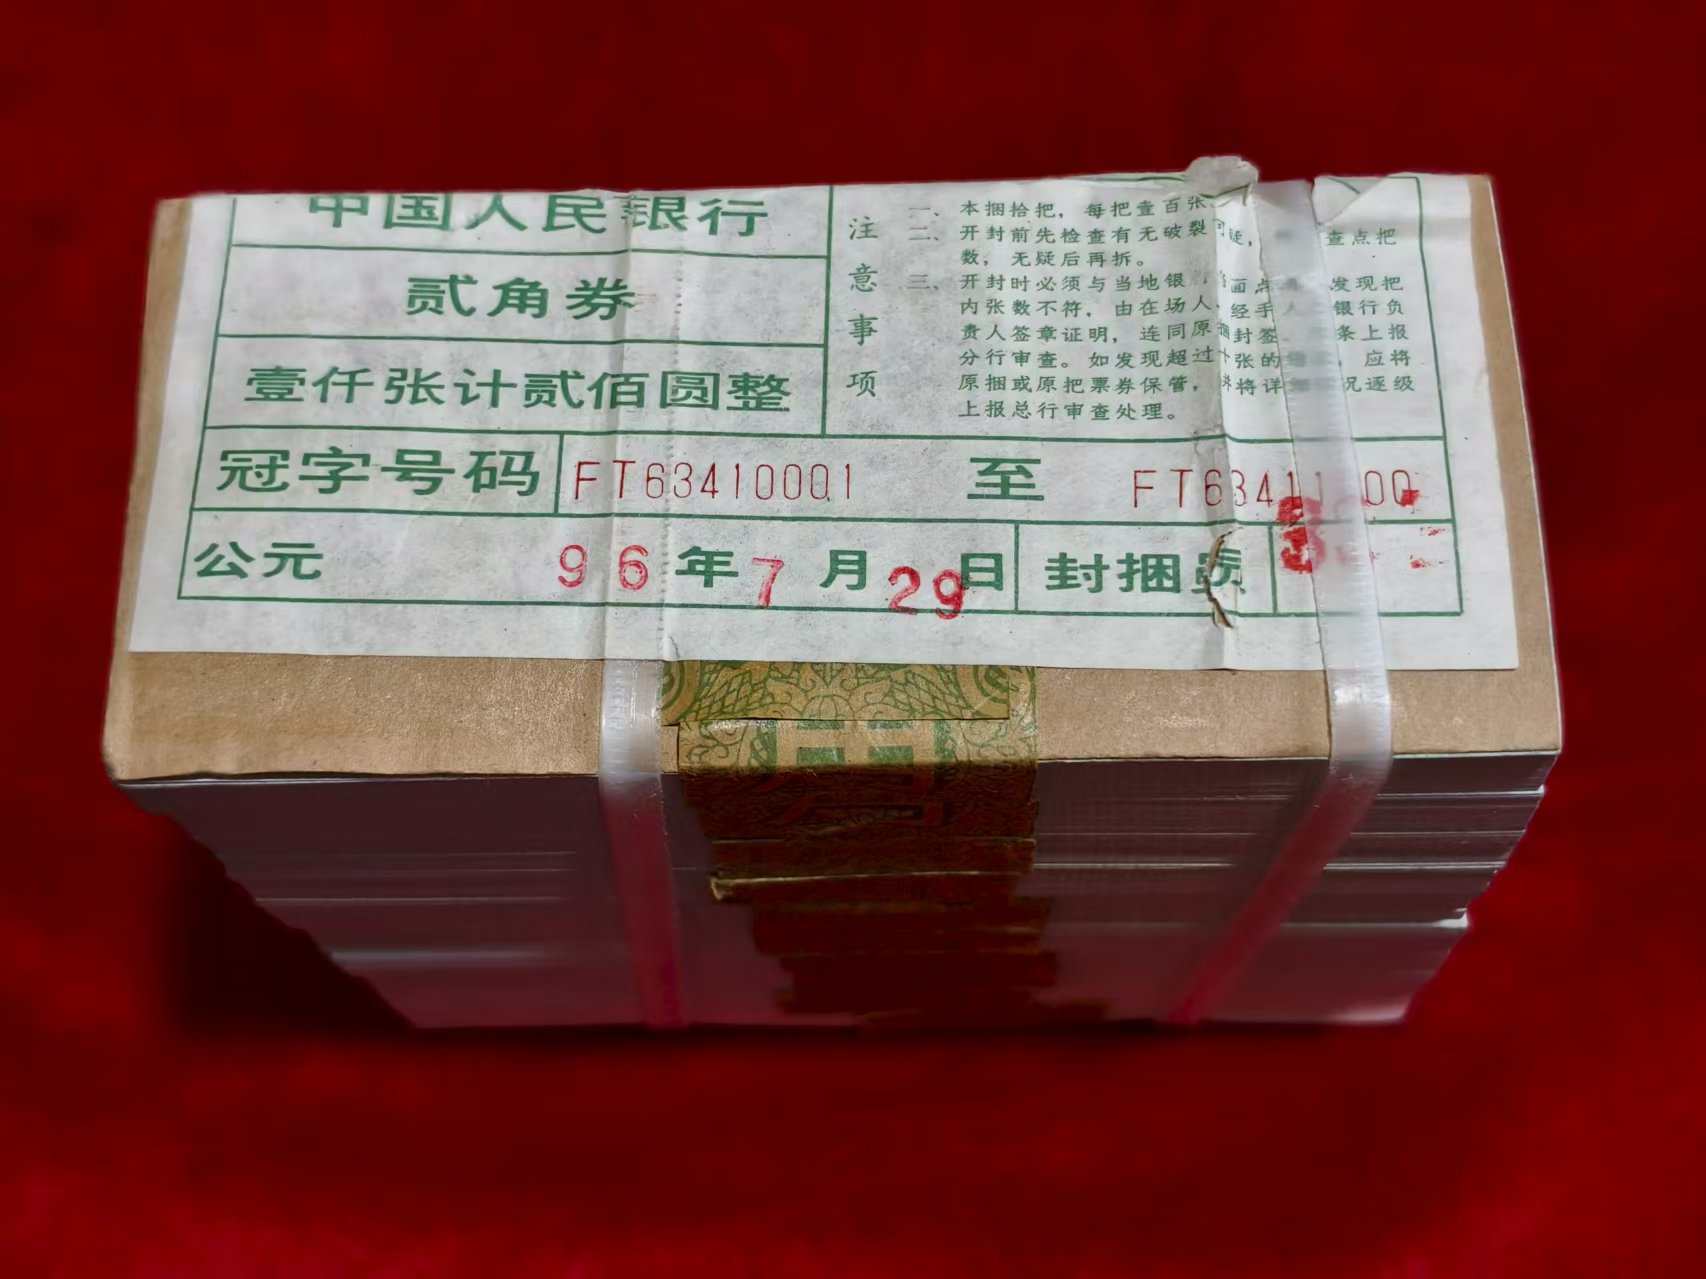 中国人民银行
贰角券
壹仟张计贰佰圆整
注意事项
一、本捆拾把，每把壹百张
二、开封前先检查有无破裂可疑，查点把
数，无疑后再拆。
三、开封时必须与当地银 当面点 发现把
内张数不符，由在场人、经手人 银行负
责人签章证明，连同原捆封签 条上报
分行审查。如发现超过十张的 ，应将
原捆或原把票券保管，并将详 况逐级
上报总行审查处理。
冠字号码 FT63410001 至 FT63411 00
公元 96年7月29日 封捆员